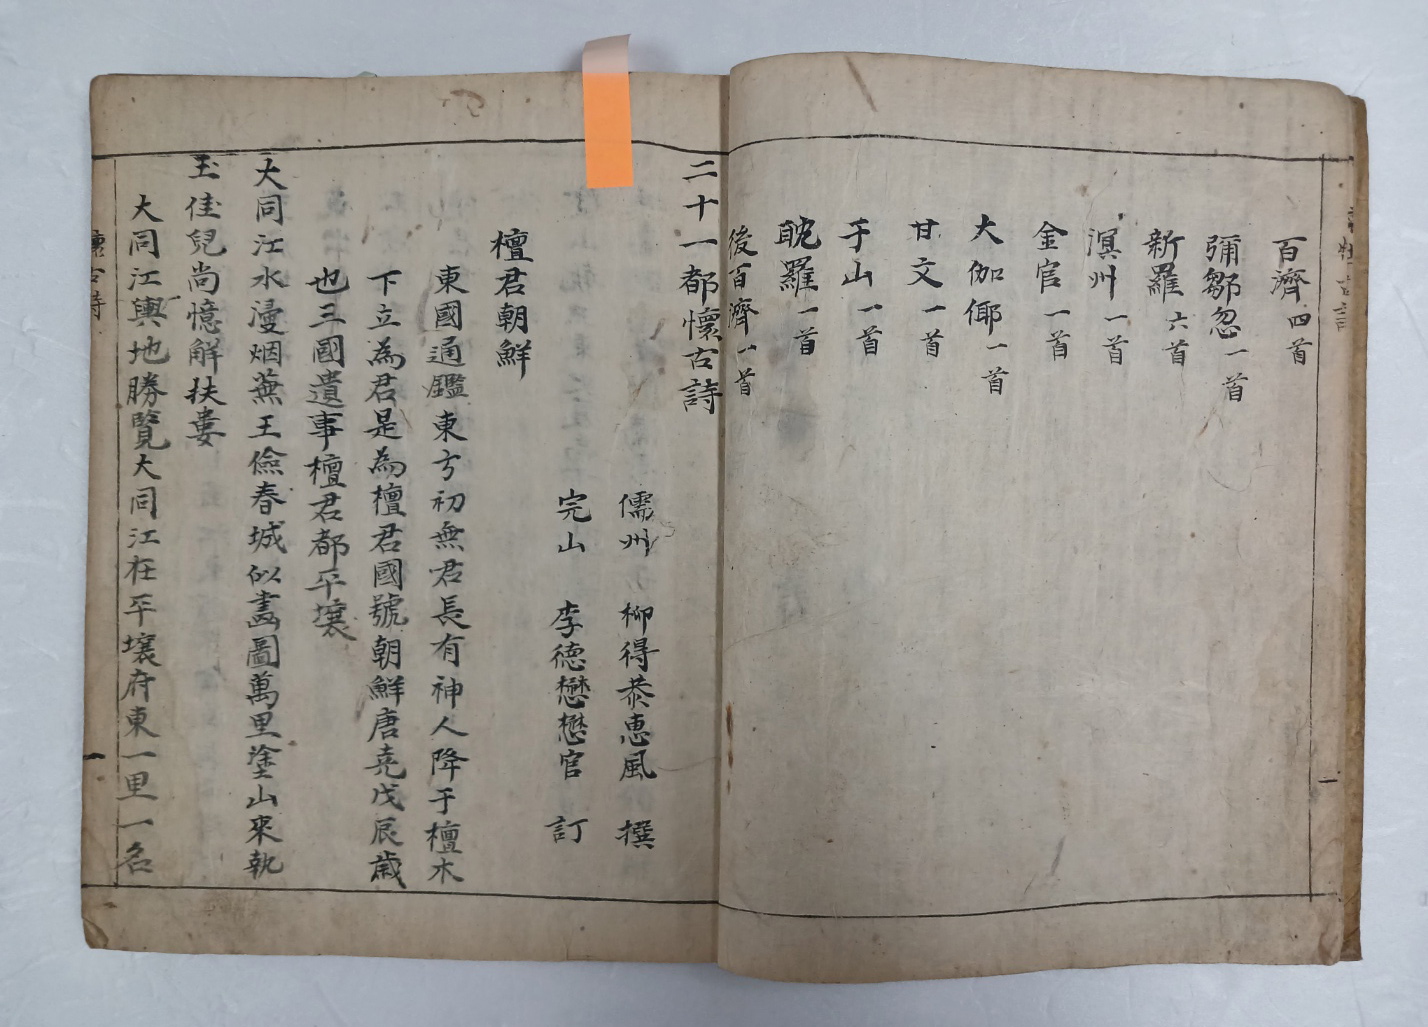 百濟 四首
彌鄒忽 一首
新羅 六首
溟州 一首
金官 一首
大伽倻 一首
甘文 一首
于山 一首
耽羅 一首
後百濟 一首
二十一都懷古詩
儒州 柳得恭惠風 撰
完山 李德懋懋官 訂
檀君朝鮮
東國通鑑東方初無君長有神人降于檀木
下立為君是為檀君國號朝鮮唐堯戊辰歲
也三國遺事檀君都平壤
大同江水漫烟蕪王儉春城似畵圖萬里塗山來執
玉佳兒尚憶解扶婁
大同江輿地勝覽大同江在平壤府東一里一名
懷古詩